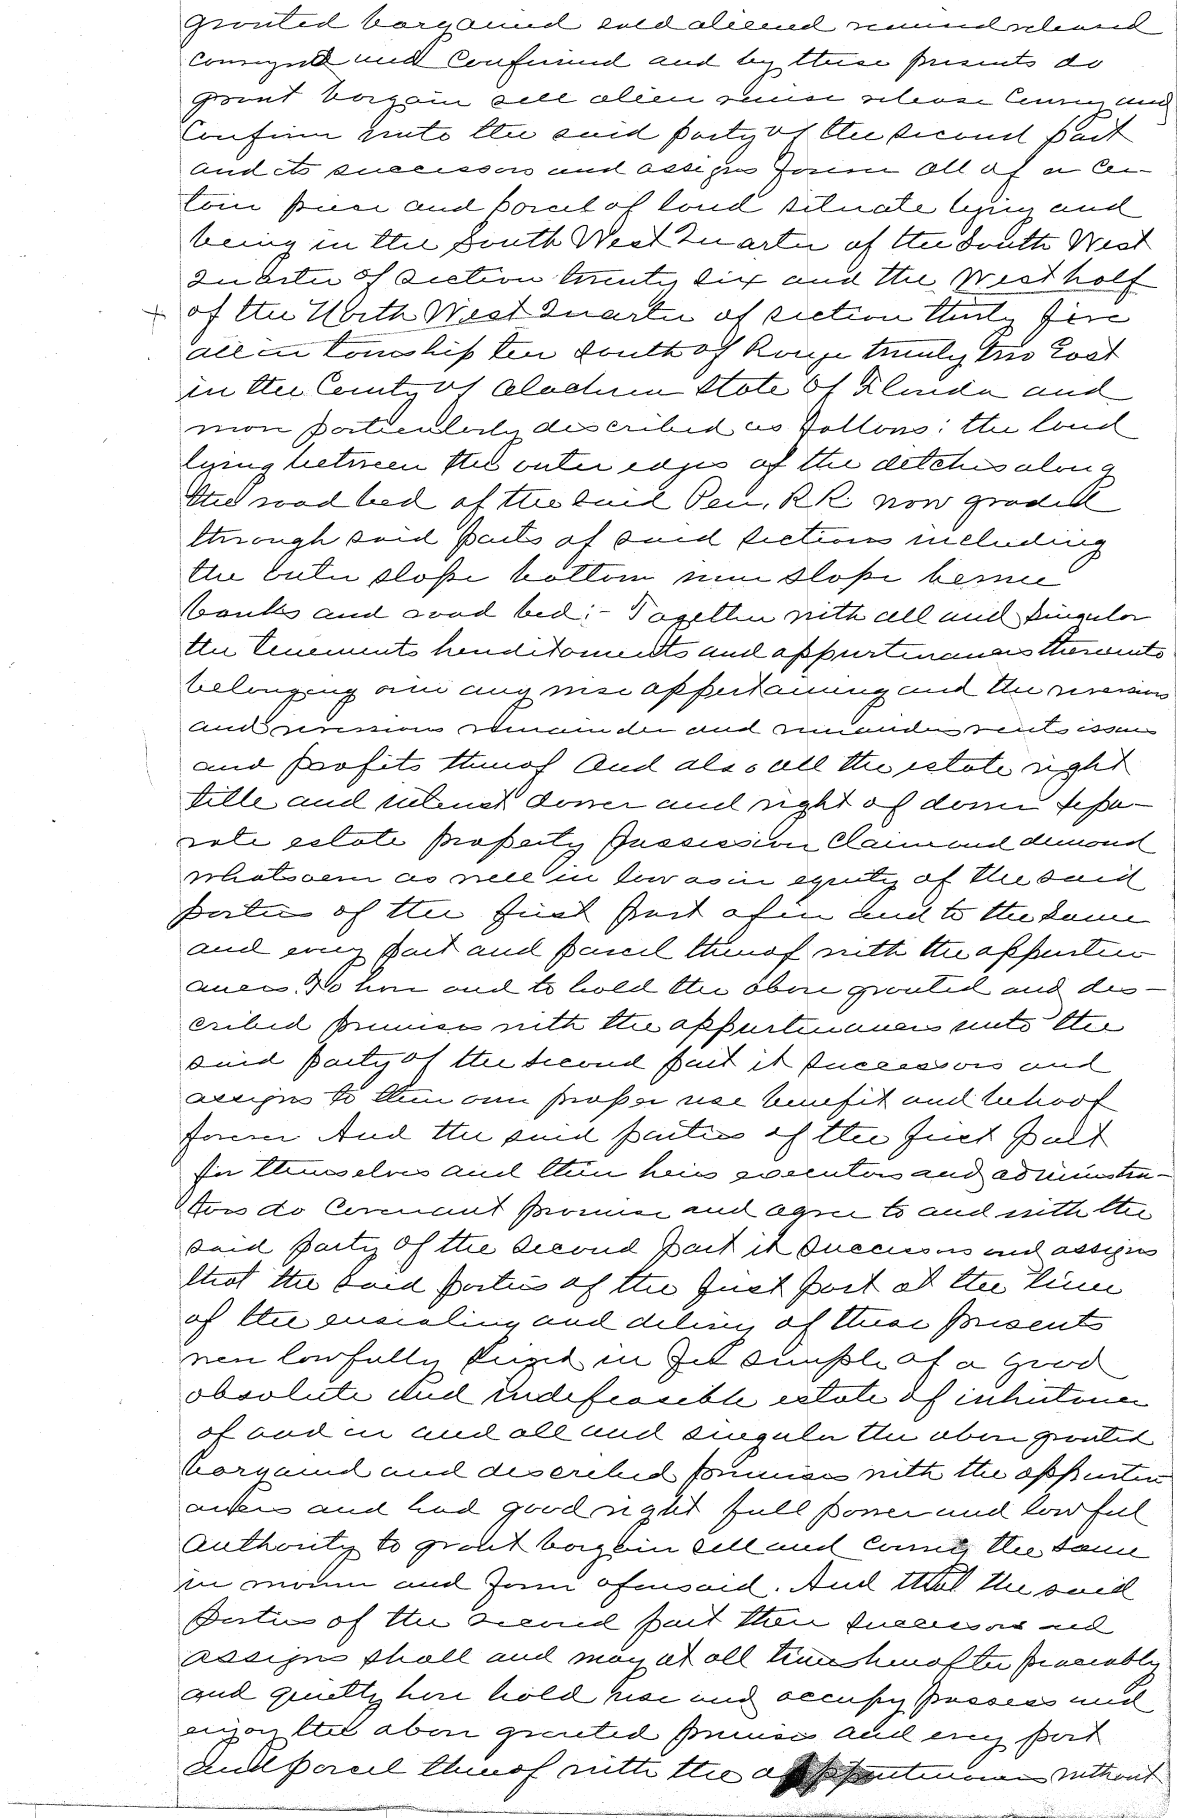 granted bargained sold aliened remised released
conveyed and Confirmed and by these presents do
grant bargain sell alien remise release Convey and
Confirm unto the said party of the second part
and its successors and assigns forever all of a cer-
tain piece and parcel of land situate lying and
being in the South West Quarter of the South West
Quarter of section twenty six and the West half
+ of the North West Quarter of section thirty five
all in township ten south of Range twenty two East
in the County of Alachua State of Florida and
more particularly described as follows: the land
lying between the outer edges of the ditches along
the road bed of the said Pen. R R. now graded
through said parts of said sections including
the outer slope bottom inner slope berme
banks and road bed:- Together with all and singular
the tenements hereditaments and appurtenances thereunto
belonging or in any wise appertaining and the reversion
and reversions remainder and remainders rents issues
and profits thereof And also all the estate right
title and interest dower and right of dower sepa-
rate estate property possession Claim and demand
whatsoever as well in law as in equity of the said
parties of the first part of in and to the same
and every part and parcel thereof with the appurten
ances. To have and to hold the above granted and des-
cribed premises with the appurtenances unto the
said party of the second part it successors and
assigns to their own proper use benefit and behoof
forever And the said parties of the first part
for themselves and their heirs executors and administra-
tors do Covenant promise and agree to and with the
said party of the second part it successors and assigns
that the said parties of the first part at the time
of the ensealing and delivery of these presents
were lawfully seized in fee simple of a good
absolute and indefeasible estate of inheritance
of and in and all and singular the above granted
bargained and described premises with the appurten
ances and had good right full power and lawful
authority to grant bargain sell and convey the same
in manner and form aforesaid. And that the said
parties of the second part their successors and
assigns shall and may at all times hereafter peaceably
and quietly have hold use and occupy possess and
enjoy the above granted premises and every part
and parcel thereof with the appurtenances without